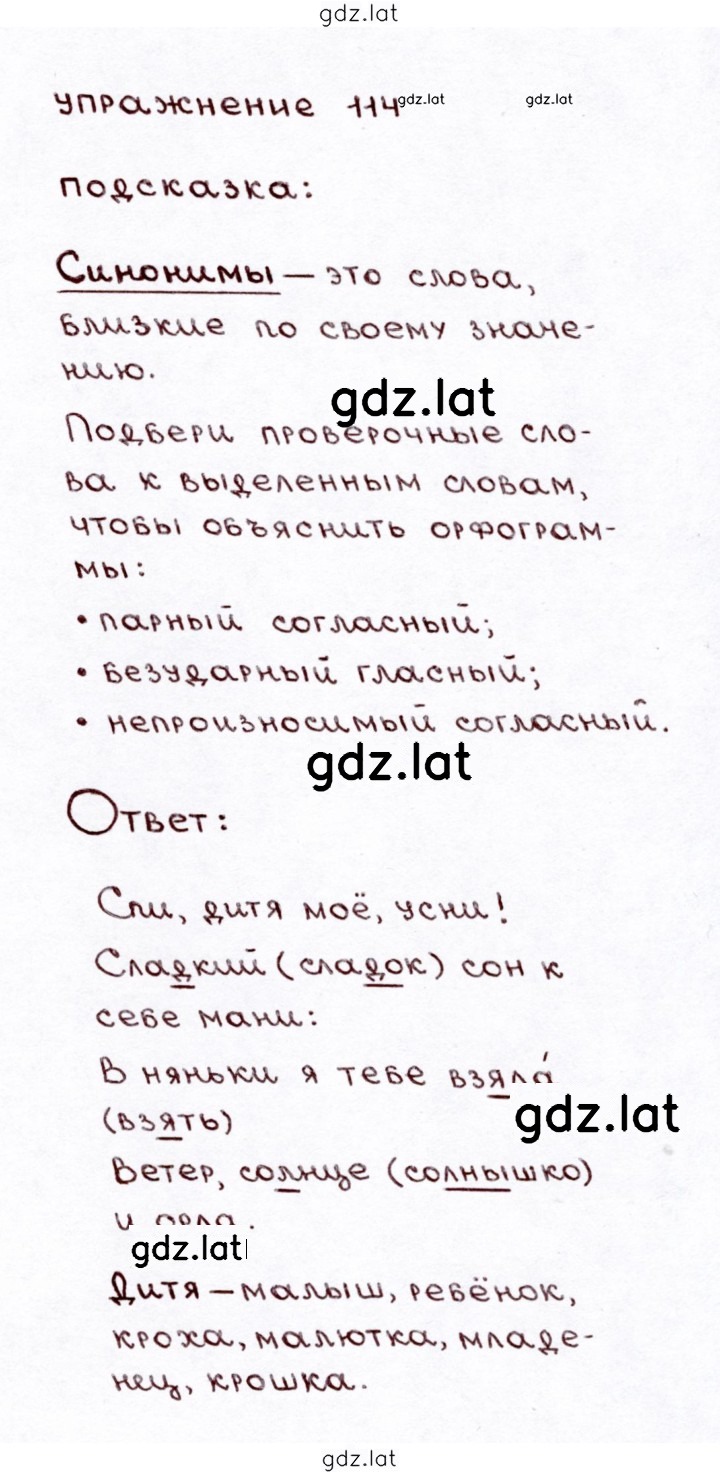 gdz.lat
упражнение 114
gdz.lat gdz.lat
подсказка:
Синонимы – это слова,
близкие по своему значе-
нию.
gdz.lat
Подбери проверочные сло-
ва к выделенным словам,
чтобы объяснить орфограм-
мы:
• парный согласный;
• безударный гласный;
• непроизносимый согласный.
gdz.lat
Ответ:
Спи, дитя моё, усни!
Сладкий (сладок) сон к
себе мани:
В няньки я тебе взяла́
gdz.lat
(взять)
Ветер, солнце (солнышко)
и орла.
gdz.lat
Дитя – малыш, ребёнок,
кроха, малютка, младе-
нец, крошка.
gdz.lat